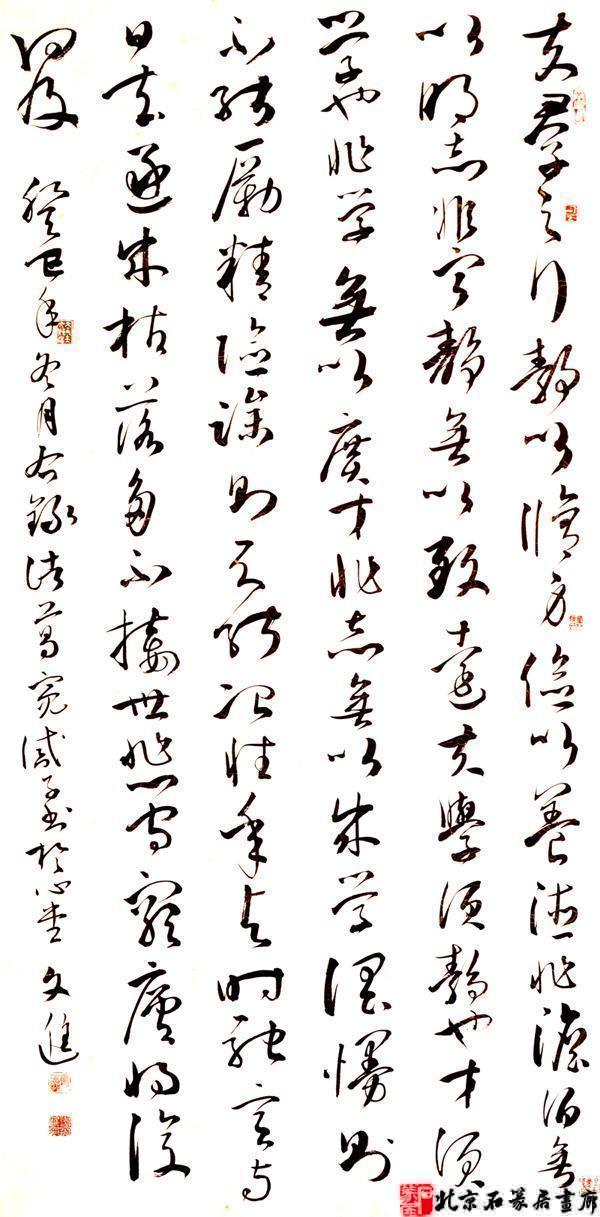 夫君子之行靜以脩身儉以養德非澹泊無
以明志非寧靜無以致遠夫學須靜也才須
学也非学無以廣才非志無以成学慢則
不能勵精險躁則不能治性年与時馳意与
日去遂成枯落多不接世悲守窮廬將復
何及 癸巳年冬月右錄諸葛亮誡子書於心堂 文進
北京石篆居畫廊